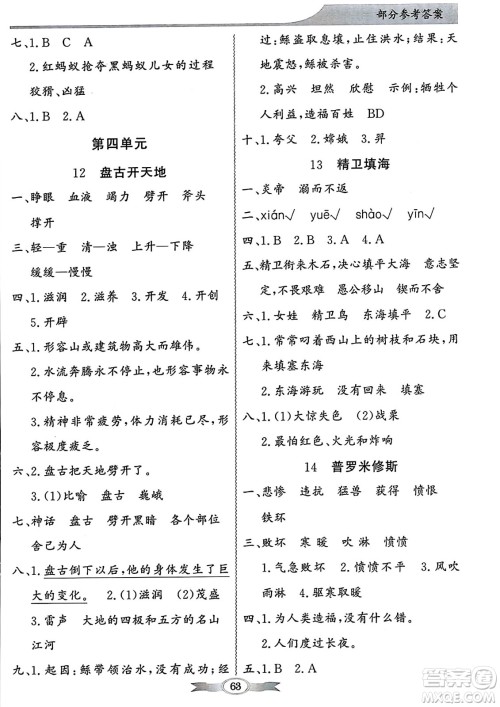 部分参考答案
七、1.B C A
2.红蚂蚁抢夺黑蚂蚁儿女的过程
狡猾、凶猛
八、1.B 2.A
第四单元
12 盘古开天地
一、睁眼 血液 竭力 劈开 斧头
撑开
三、轻—重 清—浊 上升—下降
缓缓—慢慢
四、1.滋润 2.滋养 3.开创 4.开创
5.开辟
五、1.形容山或建筑物高大而雄伟。
2.水流奔腾不停止,也形容事物永
不停息。
3.精神非常疲劳,体力消耗已尽,形
容极度疲乏。
六、2.盘古把天地劈开了。
3.(1)比喻 盘古 巍峨
七、神话 盘古 劈开黑暗 各个部位
舍己为人
八、1.盘古倒下以后,他的身体发生了巨
大的变化。 2.(1)滋润 (2)茂盛
3.雷声 大地 四极和五方的名山
江河
九、1.起因:鲧带领治水,屡战屡败; 经
过:鲧盗取息壤,止住洪水; 结果:天
地震怒,鲧被杀害。
2.高兴 坦然 欣慰 示例:牺牲个
人利益,造福百姓 BD
十、1.夸父 2.嫦娥 3.羿
13 精卫填海
一、炎帝 溺而不返
二、xián√ yuē√ shào√ yīn√
四、1.B 2.A 3.B 4.A
五、精卫衔来木石,决心填平大海 意志坚
定,不畏艰难 愚公移山 锲而不舍
六、1.女娃 精卫鸟 东海填平 2.C
七、1.常常叼着西山上的树枝和石块,用
来填塞东海。
2.东海游玩 无法归来 填塞
八、1.(1)大惊失色 (2)战栗
2.红红的眼睛、火光和炸响
14 普罗米修斯
一、悲惨 违抗 猛兽 获得 愤恨
铁环
三、败坏 寒暖 吹淋 愤愤
1.气急败坏 2.愤愤不平 3.风吹
雨淋 4.驱寒取暖
四、1.为人类造福,没有什么错。
2.人们度过长夜。
五、1.B 2.A
63